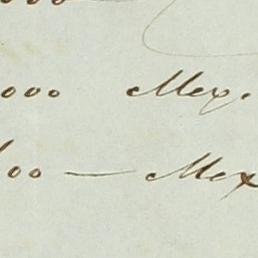 000 Mex.
00 — Mex